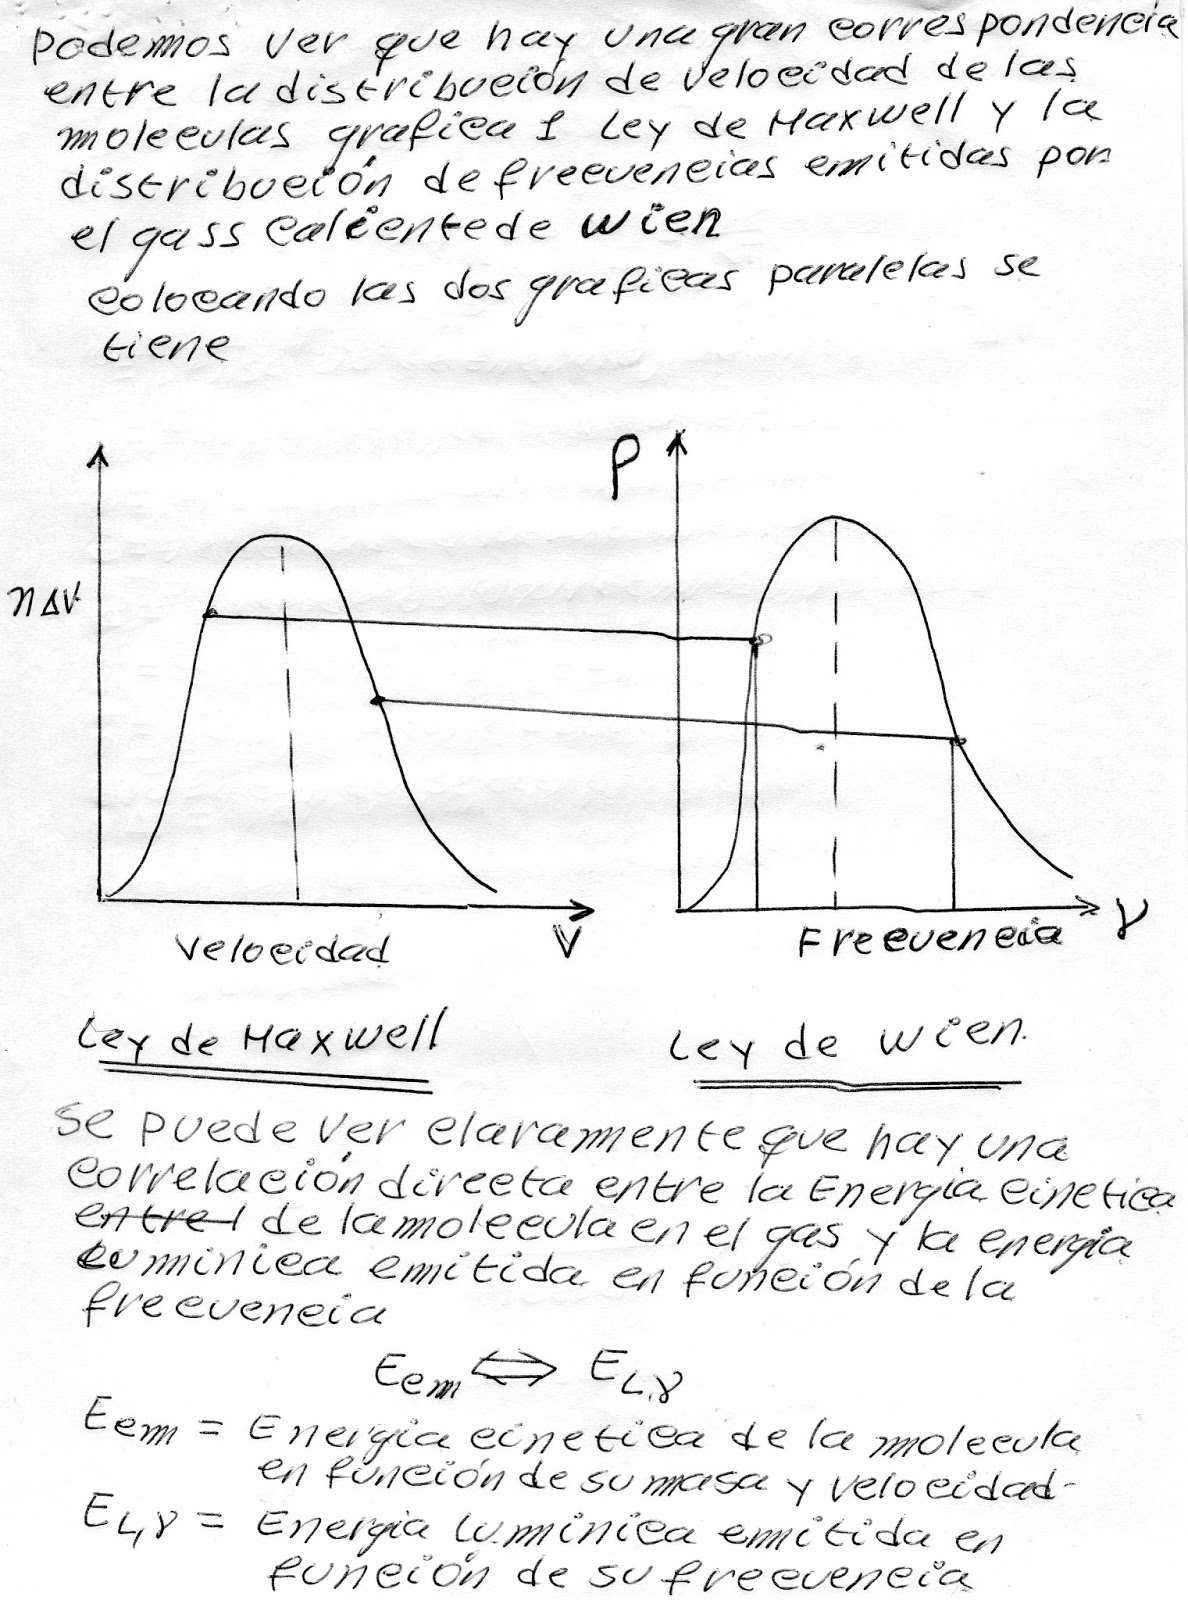 Podemos ver que hay una gran correspondencia
entre la distribución de velocidad de las
moleculas grafica 1 Ley de Maxwell y la
distribución de frecuencias emitidas por
el gass caliente de wien
colocando las dos graficas paralelas se
tiene
ρ
n Δv
Velocidad V
Frecuencia γ
Ley de Maxwell
Ley de wien.
Se puede ver claramente que hay una
correlación directa entre la Energia cinetica
entre l de la molecula en el gas y la energia
luminica emitida en función de la
frecuencia
Ecm ⇔ EL,γ
Ecm = Energia cinetica de la molecula
en función de su masa y velocidad
EL,γ = Energia luminica emitida en
función de su frecuencia